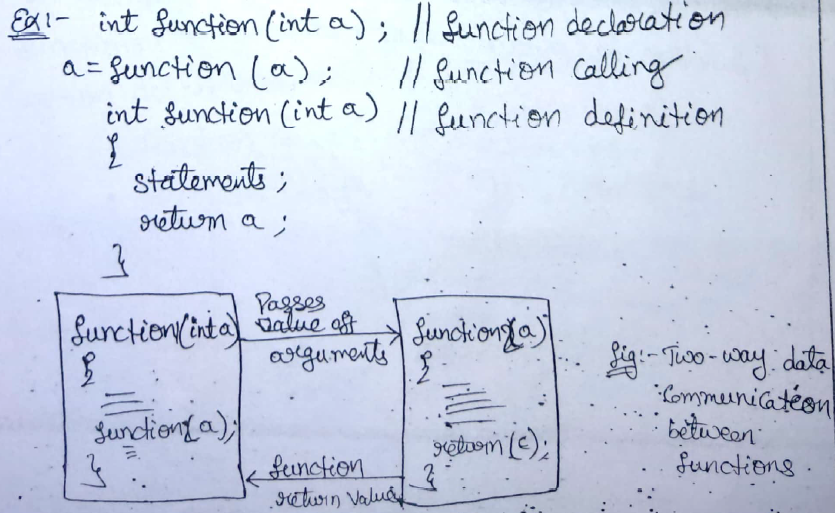 Ex:- int function(int a); // function declaration
a = function (a); // function calling
int function(int a) // function definition
{
statements;
return a;
}
function1(int a)
{
function2(a);
}
Passes
value of
arguments
function
return value
function2(a)
{
return(c);
}
Fig:- Two-way data
Communication
between
functions.